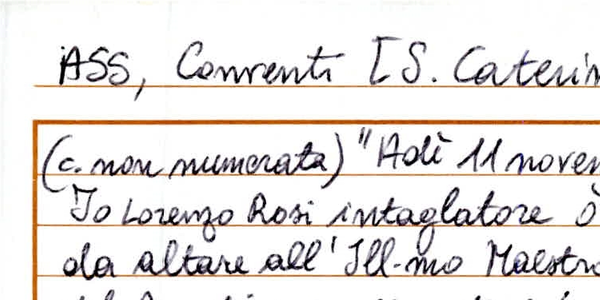 ASS, Conventi [S. Caterin
(c. non numerata) "Adì 11 noven
Io Lorenzo Rosi intaglatore ò
da altare all'Ill-mo Maestro